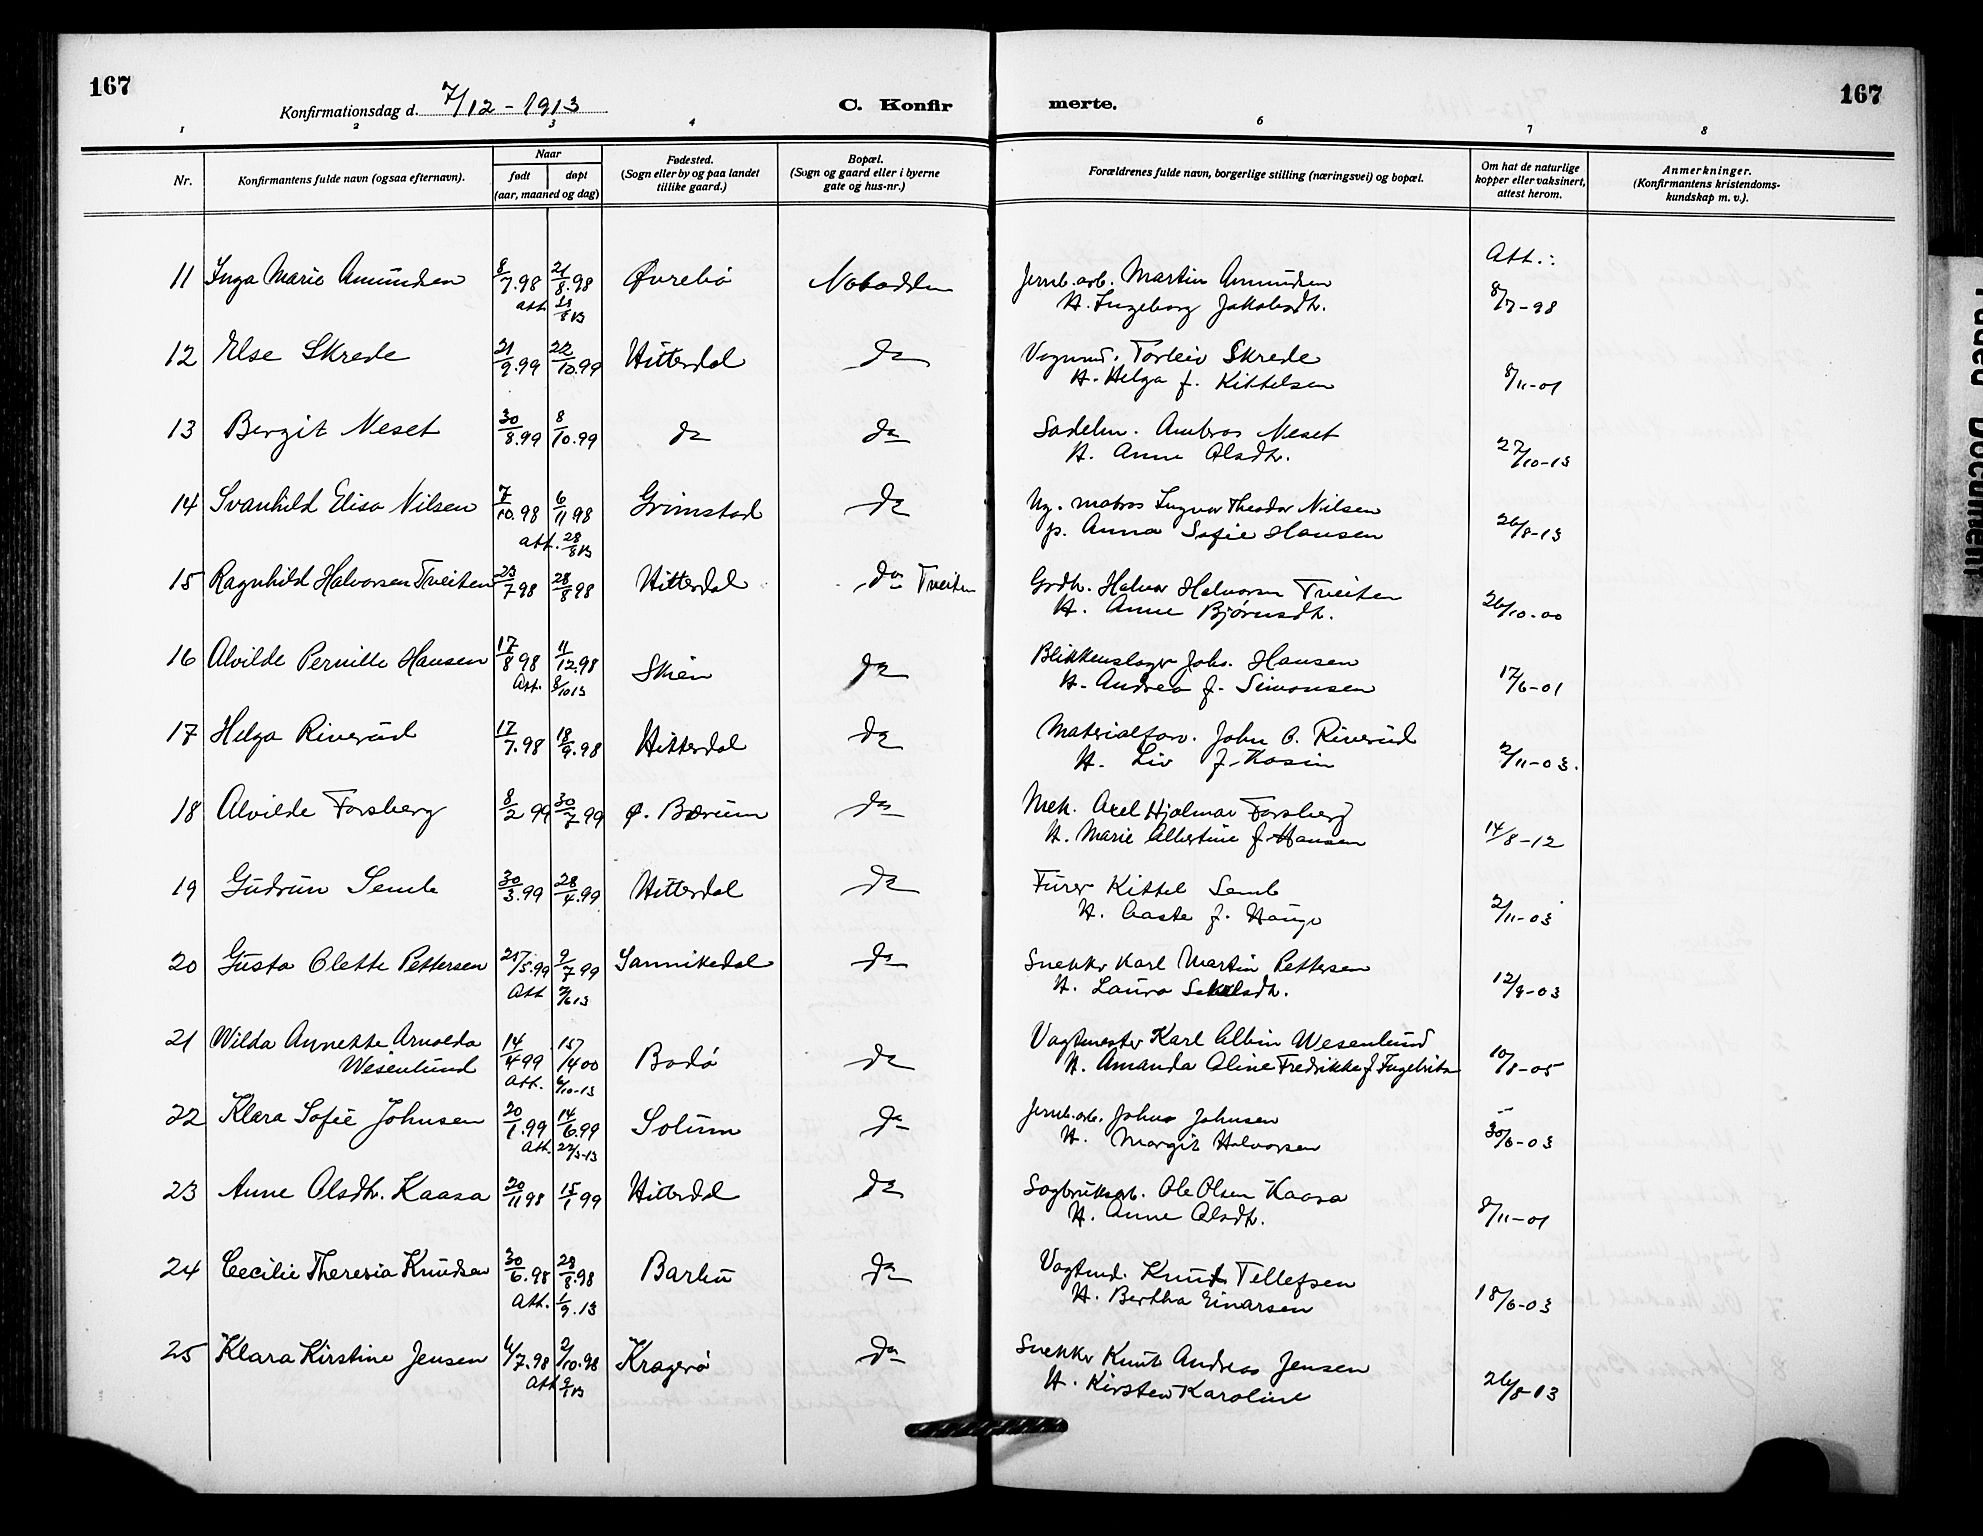 167
Konfirmationsdag d. 7/12 - 1913
C. Konfir merte.
167
1 2 3 4 6 7 8
Nr.
Konfirmantens fulde navn (ogsaa efternavn).
Naar
født døpt
(aar, maaned og dag)
Fødested.
(Sogn eller by og paa landet
tillike gaard.)
Bopæl.
(Sogn og gaard eller i byerne
gate og hus-nr.)
Forældrenes fulde navn, borgerlige stilling (næringsvei) og bopæl.
Om hat de naturlige
kopper eller vaksinert,
attest herom.
Anmerkninger.
(Konfirmantens kristendoms-
kundskap m. v.).
Att.:
11 Inga Marie Amundsen 8/7.98 21/8.98 Øvrebø Notodden Jernb.arb. Martin Amundsen
att. H. Ingeborg Jakobsdtr. 8/7-98
12 Else Skrede 21/9.99 22/10.99 Hitterdal do Vognmd. Torleiv Skrede
H. Helga f. Kittelsen 8/11-01
13 Bergit Meset 30/8.99 8/10.99 do do Sadelm. Ambros Meset
H. Anne Olsdtr. 27/10-13
14 Svanhild Elisa Nilsen 7/10.98 6/11 98 Grimstad do Ug. matros Ingvar Theodor Nilsen
att. 28/8 13 p. Anna Sofie Hansen 26/8-13
15 Ragnhild Halvorsen Tveiten 23/7 98 28/8 98 Hitterdal do Tveiten Grdbr. Halvor Halvorsen Tveiten
H. Anne Bjørnsdtr. 26/10-00
16 Alvilde Pernille Hansen 17/8 98 11/12.98 Skien do Blikkenslager Johs. Hansen
Att. 8/10 13 H. Andrea f. Simonsen 17/6-01
17 Helga Riverud 17/7.98 18/9.98 Hitterdal do Materialforv. John O. Riverud
H. Liv f. Kosin 2/11-03.
18 Alvilde Forsberg 8/2 99 30/7 99 Ø. Bærum do Mek. Axel Hjalmar Forsberg
H. Marie Albertine f. Hansen 14/8-12
19 Gudrun Semb 30/3.99 28/4.99 Hitterdal do Furer Kittel Semb
H. Aaste f. Haugo 2/11-03
20 Gusta Olette Pettersen 25/5.99 9/7 99 Sannikedal do Snekker Karl Martin Pettersen
Att H. Laura 12/9-03
21 Wilda Annette Arnolda
Wesenlund 14/4 99 15/4 00 Bodø do Vagtmester Karl Albin Wesenlund
Att. 6/10-13 H. Amanda Oline Fredrikke f. 10/8-05
22 Klara Sofie Johnsen 20/1.99 14/6.99 Solum do Jernb.arb. Johns Johnsen
Att. H. Margit Halvorsen 30/6-03
23 Anne Olsdtr. Kaasa 20/11 98 15/1 99 Hitterdal do Sagbruksarb. Ole Olsen Kaasa
H. Anne Olsdtr. 8/11-01
24 Cecilie Theresia Knudsen 30/6.98 28/8.98 Barbu do Vagtmd. Knud Tellefsen
Att. 1/9.13 H. Bertha Einarsen 18/6-03
25 Klara Kirstine Jensen 6/7.98 2/10.98 Kragerø do Snekker Knut Andreas Jensen
Att H. Kirsten Karoline 26/8-13